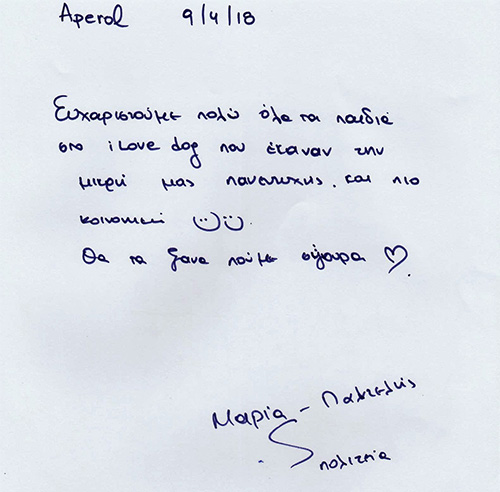 Aperol 9/4/18
Ευχαριστούμε πολύ όλα τα παιδιά
στο i Love dog που έκαναν την
μικρή μας πανευτυχής και πιο
κοινωνική
Θα τα ξανα πούμε σίγουρα
Μαρία - Παντελής